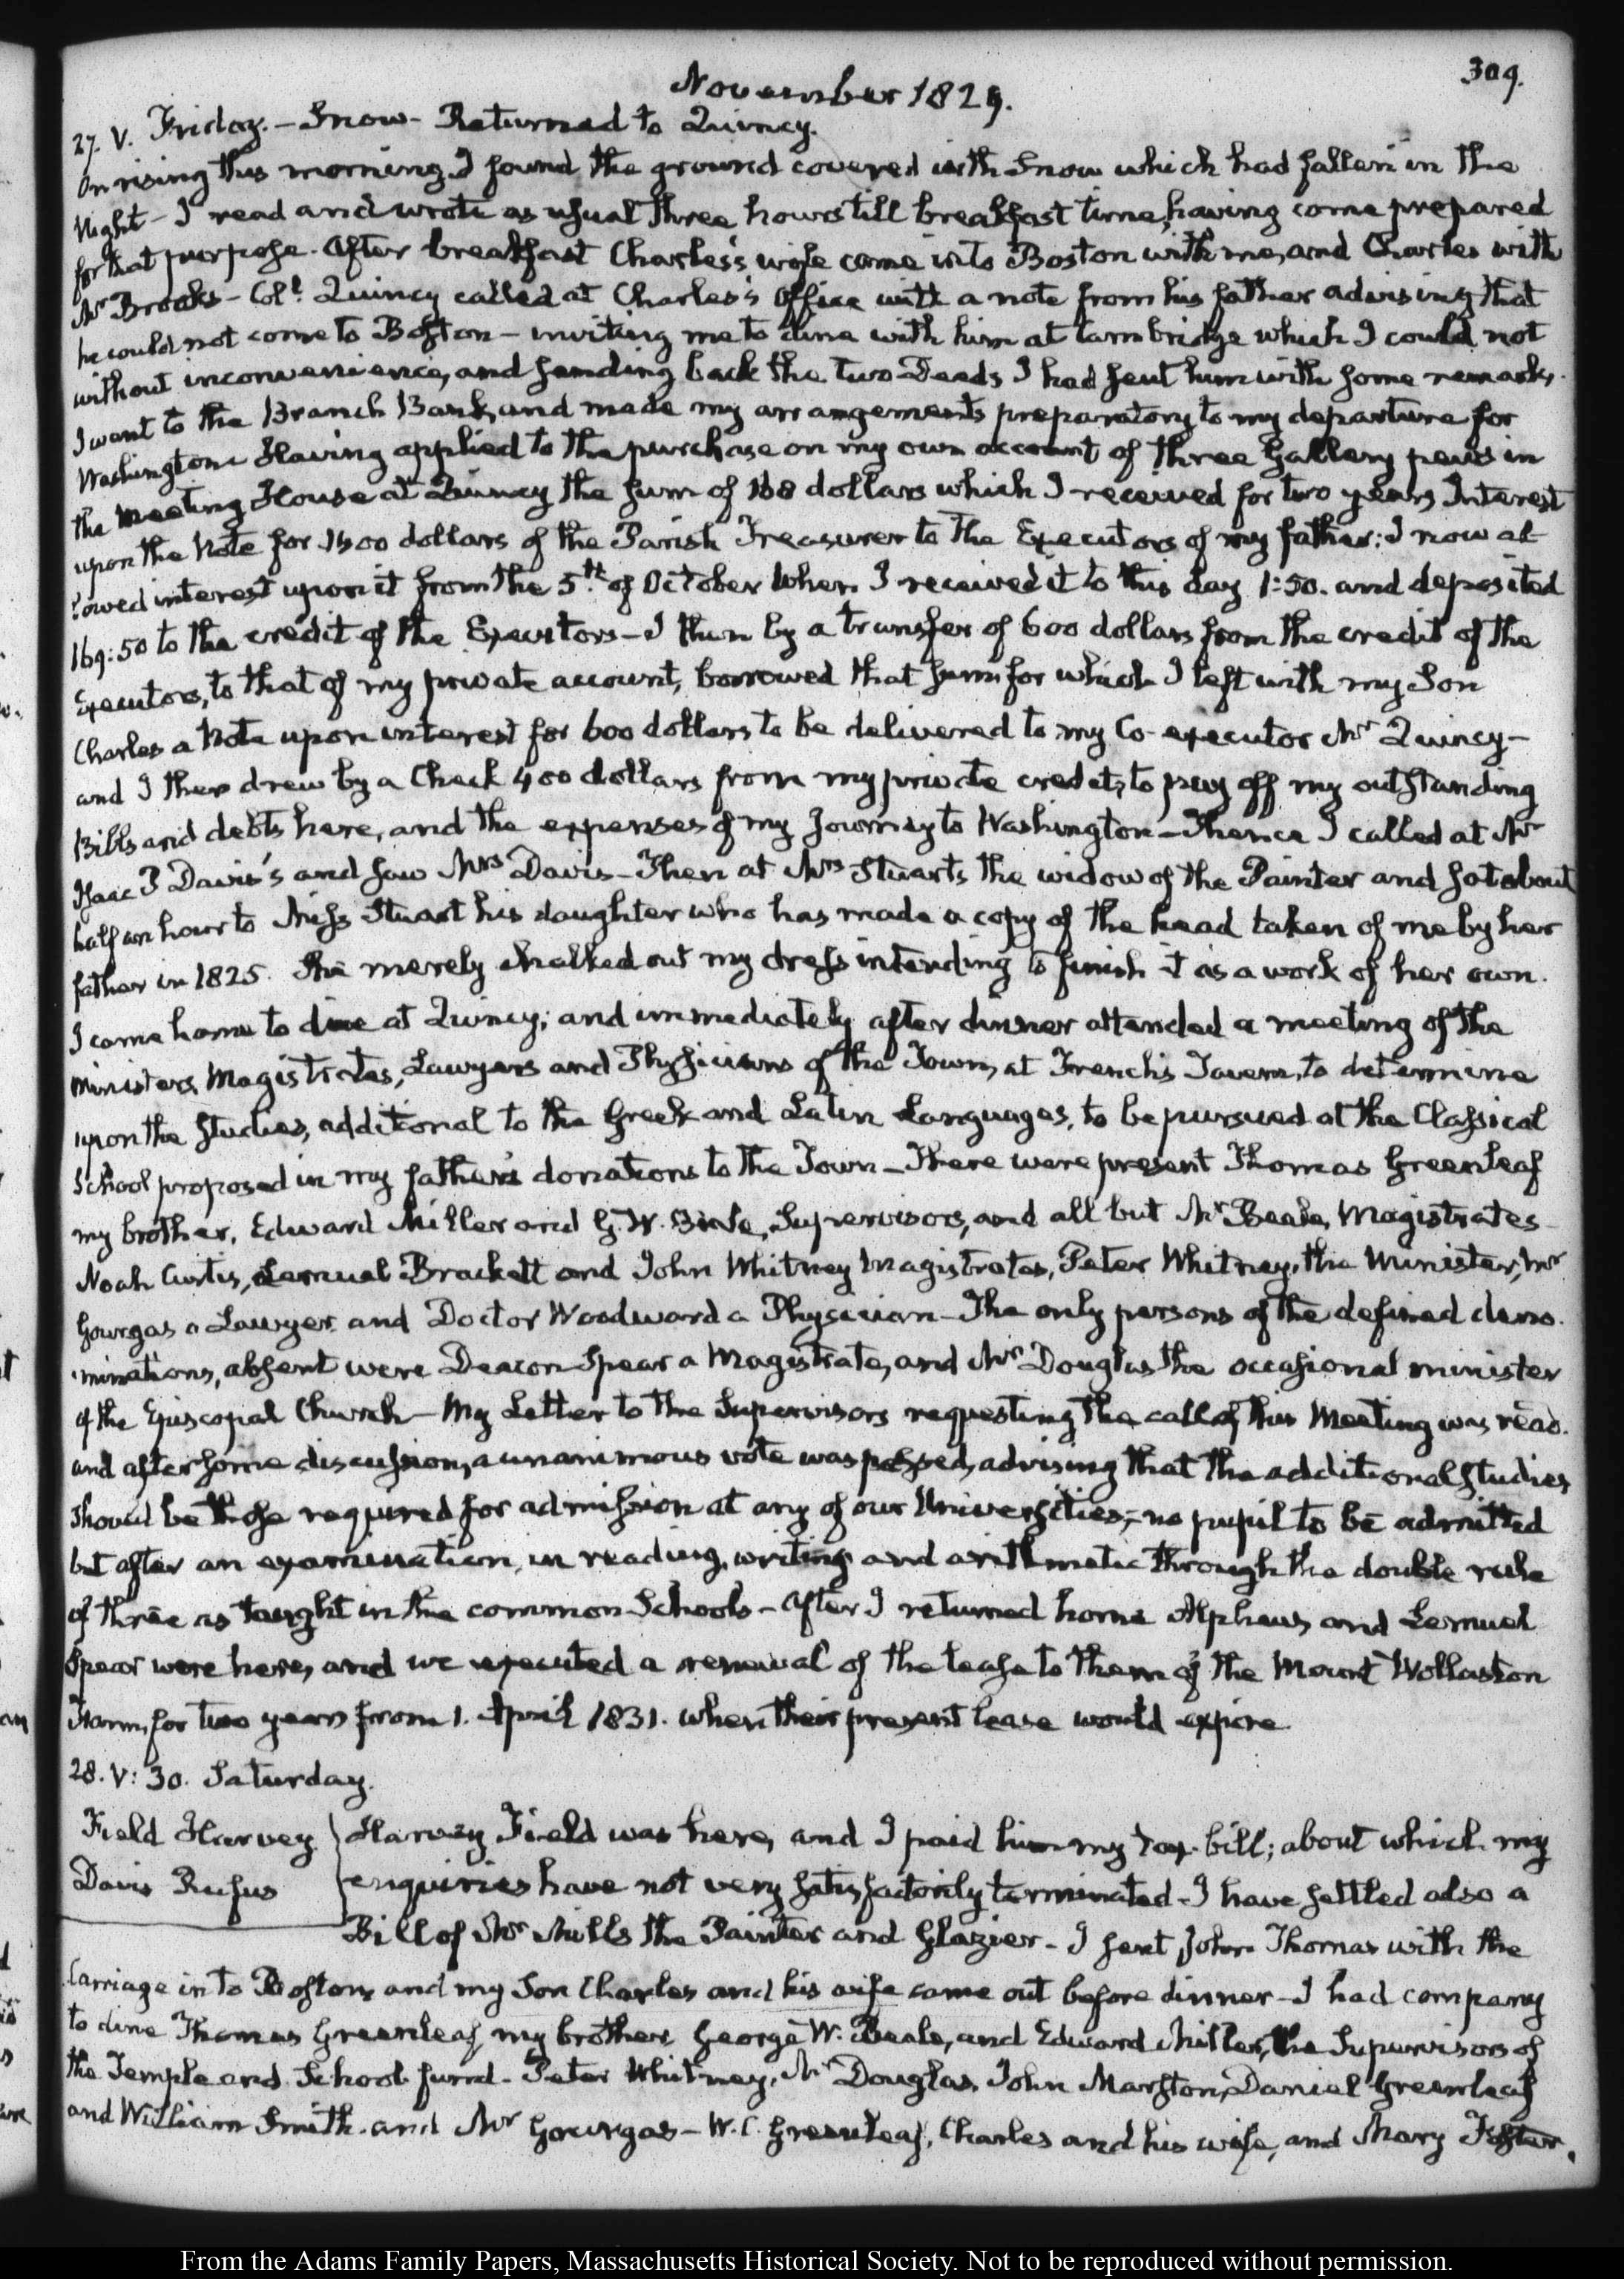 309.
November 1829.
27. V. Friday. – Snow – Returned to Quincy.
On rising this morning I found the ground covered with Snow which had fallen in the
Night – I read and wrote as usual three hours till breakfast time, having come prepared
for that purpose. After breakfast Charles's wife came into Boston with me, and Charles with
Mr Brooks – Col.l Quincy called at Charles's Office with a note from his father advising that
he could not come to Boston – inviting me to dine with him at Cambridge which I could not
without inconvenience, and sending back the two Deeds I had sent him with some remarks.
I went to the Branch Bank, and made my arrangements preparatory to my departure for
Washington. Having applied to the purchase on my own account of three Gallery pews in
the Meeting House at Quincy the sum of 168 dollars which I received for two years Interest
upon the Note for 1500 dollars of the Parish Treasurer to the Executors of my father: I now al
lowed interest upon it from the 5.th of October when I received it to this day 1:50. and deposited
169:50 to the credit of the Executors – I then by a transfer of 600 dollars from the credit of the
Executors, to that of my private account, borrowed that sum for which I left with my Son
Charles a Note upon interest for 600 dollars to be delivered to my Co-executor Mr Quincy –
and I then drew by a Check 400 dollars from my private credit, to pay off my outstanding
Bills and debts here, and the expenses of my Journey to Washington – Thence I called at Mr
Isaac P Davis's and saw Mrs Davis – Then at Mrs Stuart's the widow of the Painter and sat about
half an hour to Miss Stuart his daughter who has made a copy of the head taken of me by her
father in 1825. She merely chalked out my dress intending to finish it as a work of her own.
I came home to dine at Quincy; and immediately after dinner attended a meeting of the
Ministers, Magistrates, Lawyers and Physicians of the Town, at French's Tavern, to determine
upon the Studies, additional to the Greek and Latin Languages, to be pursued at the Classical
School proposed in my father's donations to the Town – There were present Thomas Greenleaf
my brother, Edward Miller and G. W. Beale, Supervisors, and all but Mr Beale, Magistrates –
Noah Curtis, Lemuel Brackett and John Whitney Magistrates, Peter Whitney, the Minister, Mr
Gourgas a Lawyer and Doctor Woodward a Physician – The only persons of the defined deno.
minations, absent were Deacon Spear a Magistrate, and Mr Douglas the occasional minister
of the Episcopal Church – My Letter to the Supervisors requesting the call of this Meeting was read.
and after some discussion, a unanimous vote was passed, advising that the additional studies
should be those required for admission at any of our Universities; – no pupil to be admitted
but after an examination, in reading, writing and arithmatic through the double rule
of three as taught in the common Schools – After I returned home Alpheus and Lemuel
Spear were here, and we executed a renewal of the lease to them of the Mount Wollaston
Farm, for two years from 1. April 1831. when their present lease would expire.
28. V: 30. Saturday.
Field Harvey
Davis Rufus
Harvey Field was here, and I paid him my tax-bill; about which my
enquiries have not very satisfactorily terminated – I have settled also a
Bill of Mr Mills the Painter and Glazier – I sent John Thomas with the
Carriage into Boston, and my Son Charles and his wife came out before dinner – I had company
to dine Thomas Greenleaf, my brother George W. Beale, and Edward Miller, the Supervisors of
the Temple and School fund – Peter Whitney, Mr Douglas, John Marston, Daniel Greenleaf
and William Smith. and Mr Gourgas – W. C. Greenleaf, Charles and his wife, and Mary Foster.
From the Adams Family Papers, Massachusetts Historical Society. Not to be reproduced without permission.